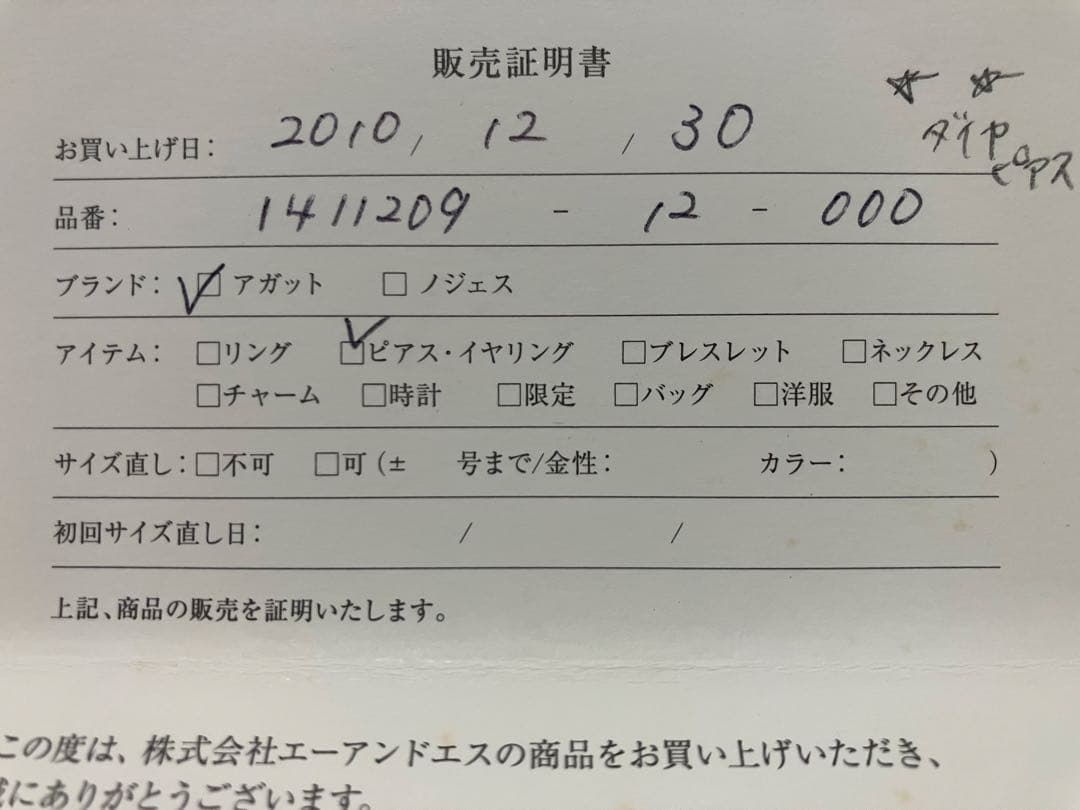 販売証明書
☆ ☆
ダイヤ
ピアス
お買い上げ日： 2010 / 12 / 30
品番： 1411209 - 12 - 000
ブランド： ☑ アガット □ ノジェス
アイテム： □リング ☑ピアス・イヤリング □ブレスレット □ネックレス
□チャーム □時計 □限定 □バッグ □洋服 □その他
サイズ直し：□不可 □可（± 号まで/金性： カラー： ）
初回サイズ直し日： / /
上記、商品の販売を証明いたします。
この度は、株式会社エーアンドエスの商品をお買い上げいただき、
にありがとうございます。